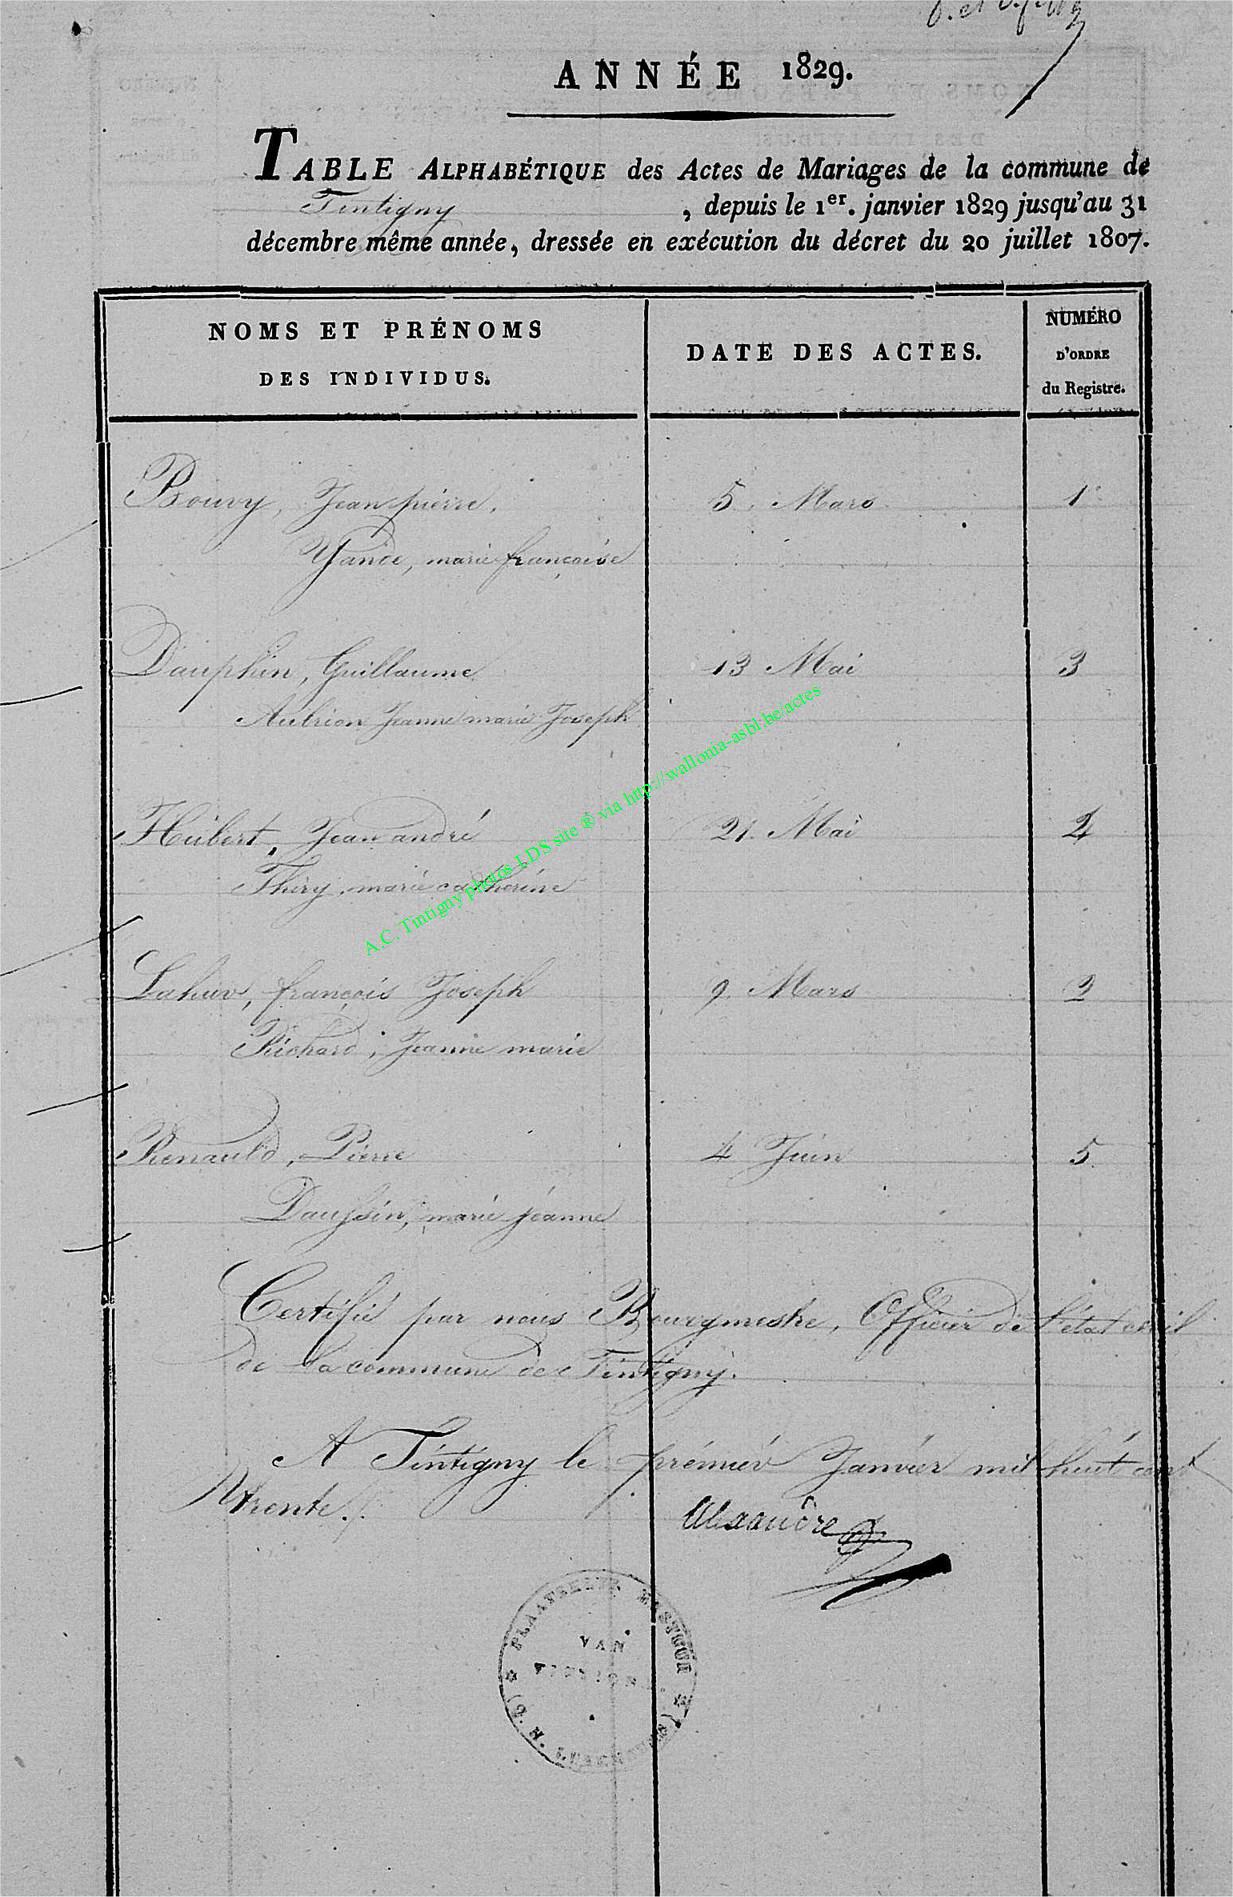 ANNÉE 1829.
TABLE ALPHABÉTIQUE des Actes de Mariages de la commune de
Tintigny , depuis le 1er. janvier 1829 jusqu'au 31
décembre même année, dressée en exécution du décret du 20 juillet 1807.
NOMS ET PRÉNOMS
DES INDIVIDUS.
DATE DES ACTES.
NUMÉRO
D'ORDRE
du Registre.
Bouvy, Jean pierre. 5. Mars 1
Yande, marie françoise
Dauphin, Guillaume 13 Mai 3
Aubrion Jeanne marie Joseph
Hubert, Jean andré 21. Mai 4
Thiry, marie catherine
Lahure, françois Joseph 9. Mars 2
Richard, Jeanne marie
Renauld, Pierre 4 Juin 5
marie jeanne
Certifié par nous Bourgmestre, Officier de l'état civil
de la commune de Tintigny.
A Tintigny le prémier Janvier mil huit cent
trente.
Alexandre
PLAATSELYK BESTUUR
VAN
TINTIGNY
(G. H. LUXEMBURG)
A.C. Tintigny photos LDS site ® via http://wallonia-asbl.be/actes